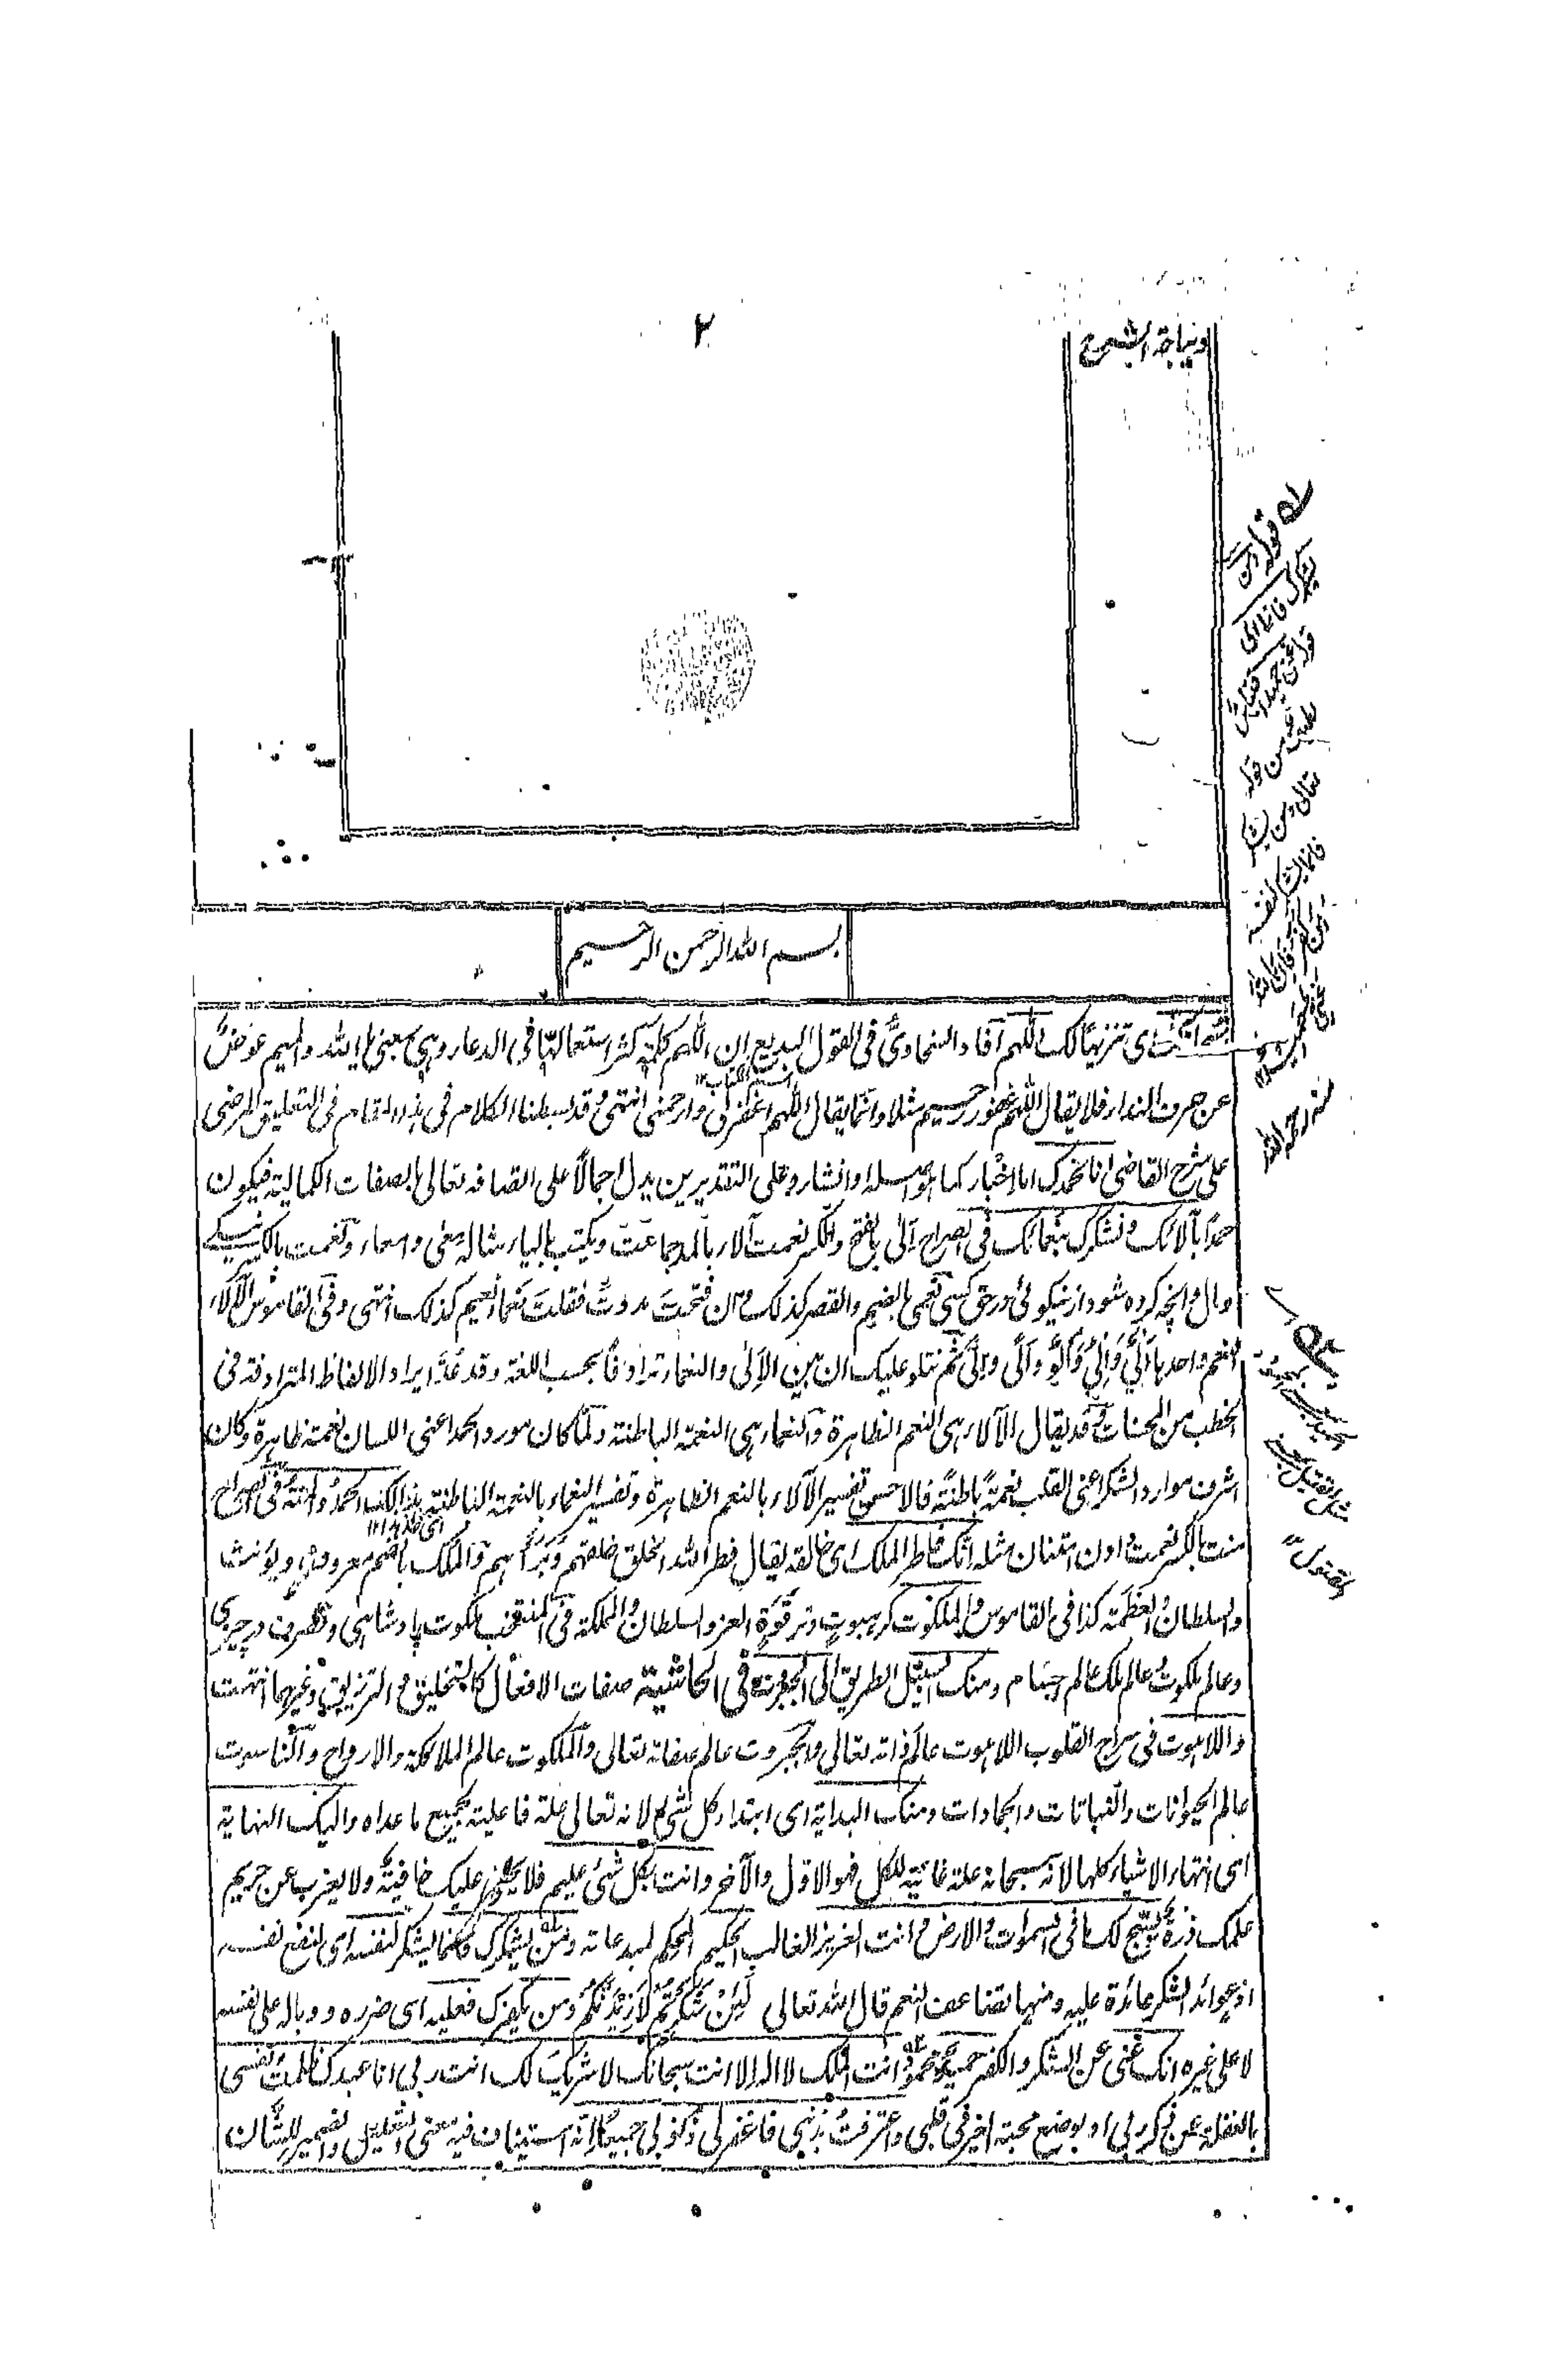 ٢
ديباجة الشرح
بسم الله الرحمن الرحيم
سبحانك اى تنزيها لك اللهم آفاد السخاوىُّ فى القول البديع ان اللهم كلمة كثر استعمالها فى الدعاء وهى بمعنى يا الله والميم عوضٌ
عن حرف النداء فلا يقال اللهم غفور رحيم مثلا وانما يقال اللهم اغفر لى وارحمنى انتهى وقد بسطنا الكلام فى هذا المقام فى التعليق المرضى
على شرح القاضى انا نحمدك اما اخبار كما هو اصله او انشاء وعلى التقديرين يدل اجمالا على اتصافه تعالى بالصفات الكمالية فيكون
حمدا بآلائك ونشكرك بنعمائك فى الصراح اَلىٰ بالفتح والكسر نعمت آلاء بالمد جماعت ويكتب بالياء مثاله معى وامعاء ونعمت بالكسر نيكى
ومال وانچه كرده شود از نيكوئى در حق كسى نُعمى بالضم والقصر كذلك وان فتحتَ مددتَّ فقلتَ نعماء نعيم كذلك انتهى وفى القاموس الآلاء
النعم واحدها اِلْىٌ وَاَلْىٌ وَاَلْوٌ واَلًى واِلًى ثم نتلو عليك ان بين الآلاء والنعماء ترادفًا بحسب اللغة وقد عُدَّ ايراد الالفاظ المترادفة فى
الخطب من المحسنات وقد يقال الآلاء هى النعم الظاهرة والنعماء هى النعمة الباطنة ولما كان مورد الحمد اعنى اللسان نعمة ظاهرة وكان
اشرف موارد الشكر اعنى القلب نعمةً باطنةً فالاحسن تفسير الآلاء بالنعم الظاهرة وتفسير النعماء بالنعمة الباطنة لك الحمد والمنة فى الصراح
منت بالكسر نعمت دادن امتنان مثله انك فاطر الملك اى خالقه يقال فطر الله الخلق خلقهم وبَرَأهم والملك بالضم معروف ويؤنث
والسلطان والعظمة كذا فى القاموس والملكوت كرهبوت وترقوة العز والسلطان والمملكة فى المنتخب ملكوت پادشاهى وتصرف در چيزى
وعالم ملكوت عالم ملك عالم اجسام ومنك السبيل الطريق الى الجبروت فى الحاشية صفات الافعال كالتخليق والترزيق وغيرهما انتهت
واللاهوت فى سراج القلوب اللاهوت عالم ذاته تعالى والجبروت عالم صفاته تعالى والملكوت عالم الملائكة والارواح والناسوت
عالم الحيوانات والنباتات والجمادات ومنك البداية اى ابتداء كل شىء لانه تعالى علة فاعلية لجميع ما عداه واليك النهاية
اى انتهاء الاشياء كلها لانه سبحانه علة غائية للكل فهو الاول والآخر وانت بكل شىء عليم فلا يخفى عليك خافية ولا يعزب عن حريم
علمك ذرة يسبح لك ما فى السموات والارض وانت العزيز الغالب الحكيم المحكم لمبدعاته ومن يشكرك فانما يشكر لنفسه اى لنفع نفسه
اذ عوائد الشكر عائدة عليه ومنها تضاعف النعم قال الله تعالى لَئِنْ شَكَرْتُمْ لَاَزِيْدَنَّكُمْ ومن يكفرك فعليه اى ضرره ووباله على نفسه
لا على غيره انك غنى عن الشكر والكفر حميد محمود انت الملك لا اله الا انت سبحانك لا شريك لك انت ربى انا عبدك ظلمت نفسى
بالغفلة عن ذكر ربى او بوضع محبة اخير فى قلبى واعترفت بذنبى فاغفر لى ذنوبى جميعا انه استينافٌ فيه معنى التعليل والضمير للشأن
قوله ومن
يشكرك فانما الى
قوله غنى حميد اقتباس
لطيف من قوله
تعالى ومن يشكر
فانما يشكر لنفسه
ومن كفر فان الله
غنى حميد
منه رحمه الله